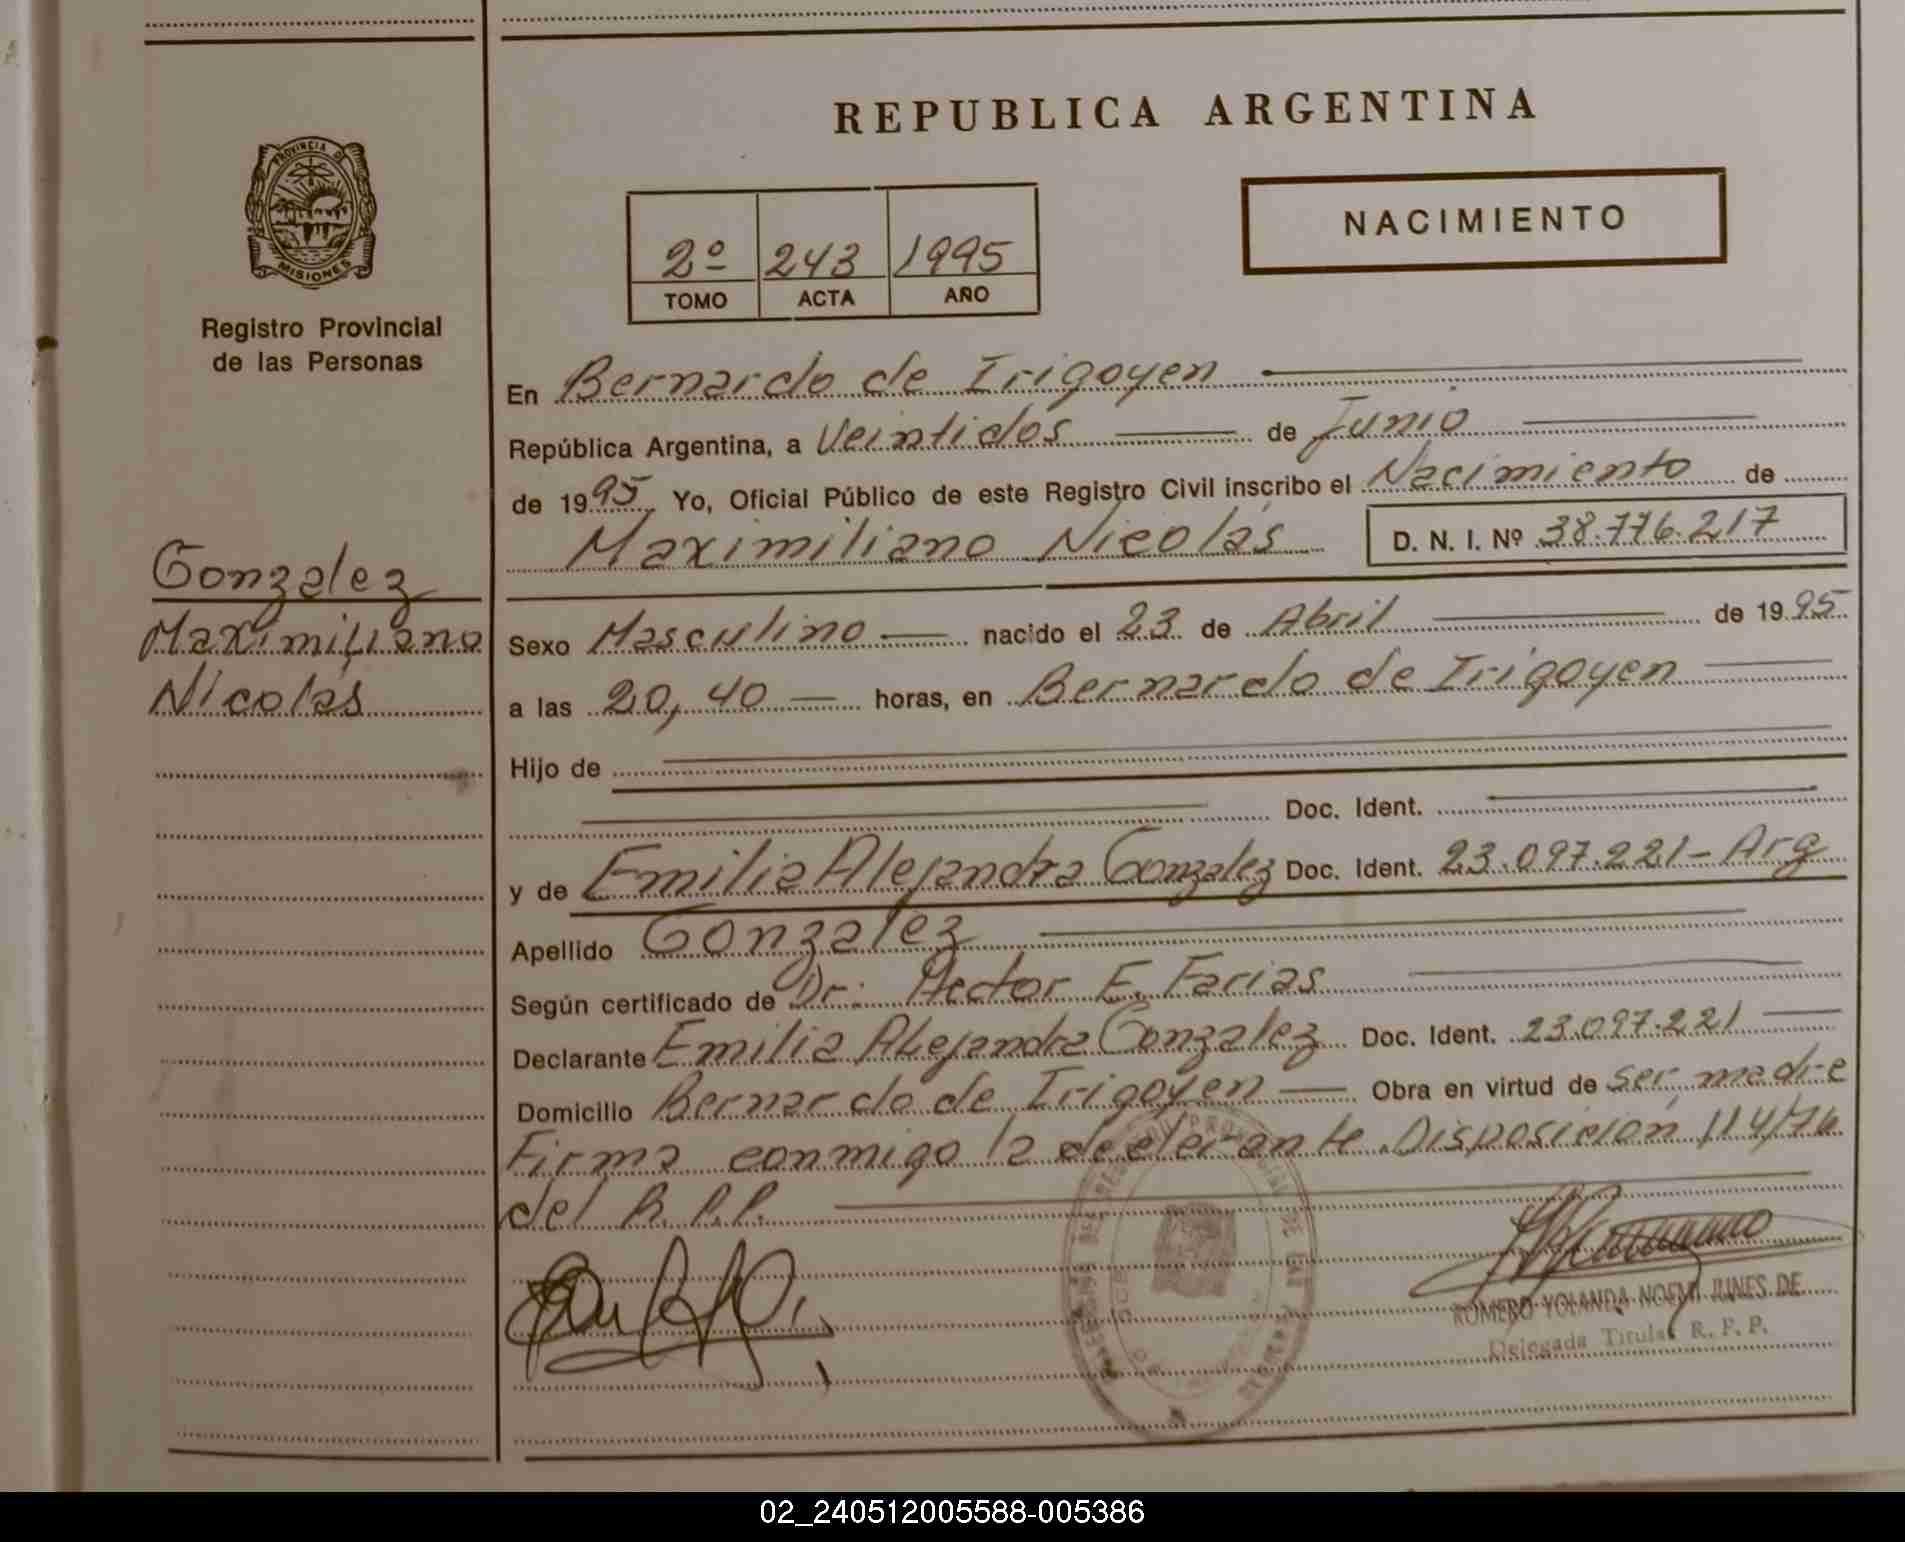 REPUBLICA ARGENTINA
PROVINCIA DE
MISIONES
Registro Provincial
de las Personas
NACIMIENTO
2º 243 1995
TOMO ACTA AÑO
Gonzalez
Maximiliano
Nicolás
En Bernardo de Irigoyen
República Argentina, a Veintidós de Junio
de 1995 Yo, Oficial Público de este Registro Civil inscribo el Nacimiento de
Maximiliano Nicolás D. N. I. Nº 38.776.217
Sexo Masculino nacido el 23 de Abril de 1995
a las 20,40 horas, en Bernardo de Irigoyen
Hijo de
Doc. Ident.
y de Emilia Alejandra Gonzalez Doc. Ident. 23.097.221-Arg
Apellido Gonzalez
Según certificado de Dr: Hector E. Farias
Declarante Emilia Alejandra Gonzalez Doc. Ident. 23.097.221
Domicilio Bernardo de Irigoyen Obra en virtud de ser madre
Firma conmigo la declarante. Disposición 114/76
del R.P.P.
ROMERO YOLANDA NOEMI JUNES DE
Delegada Titular R. P. P.
02_240512005588-005386